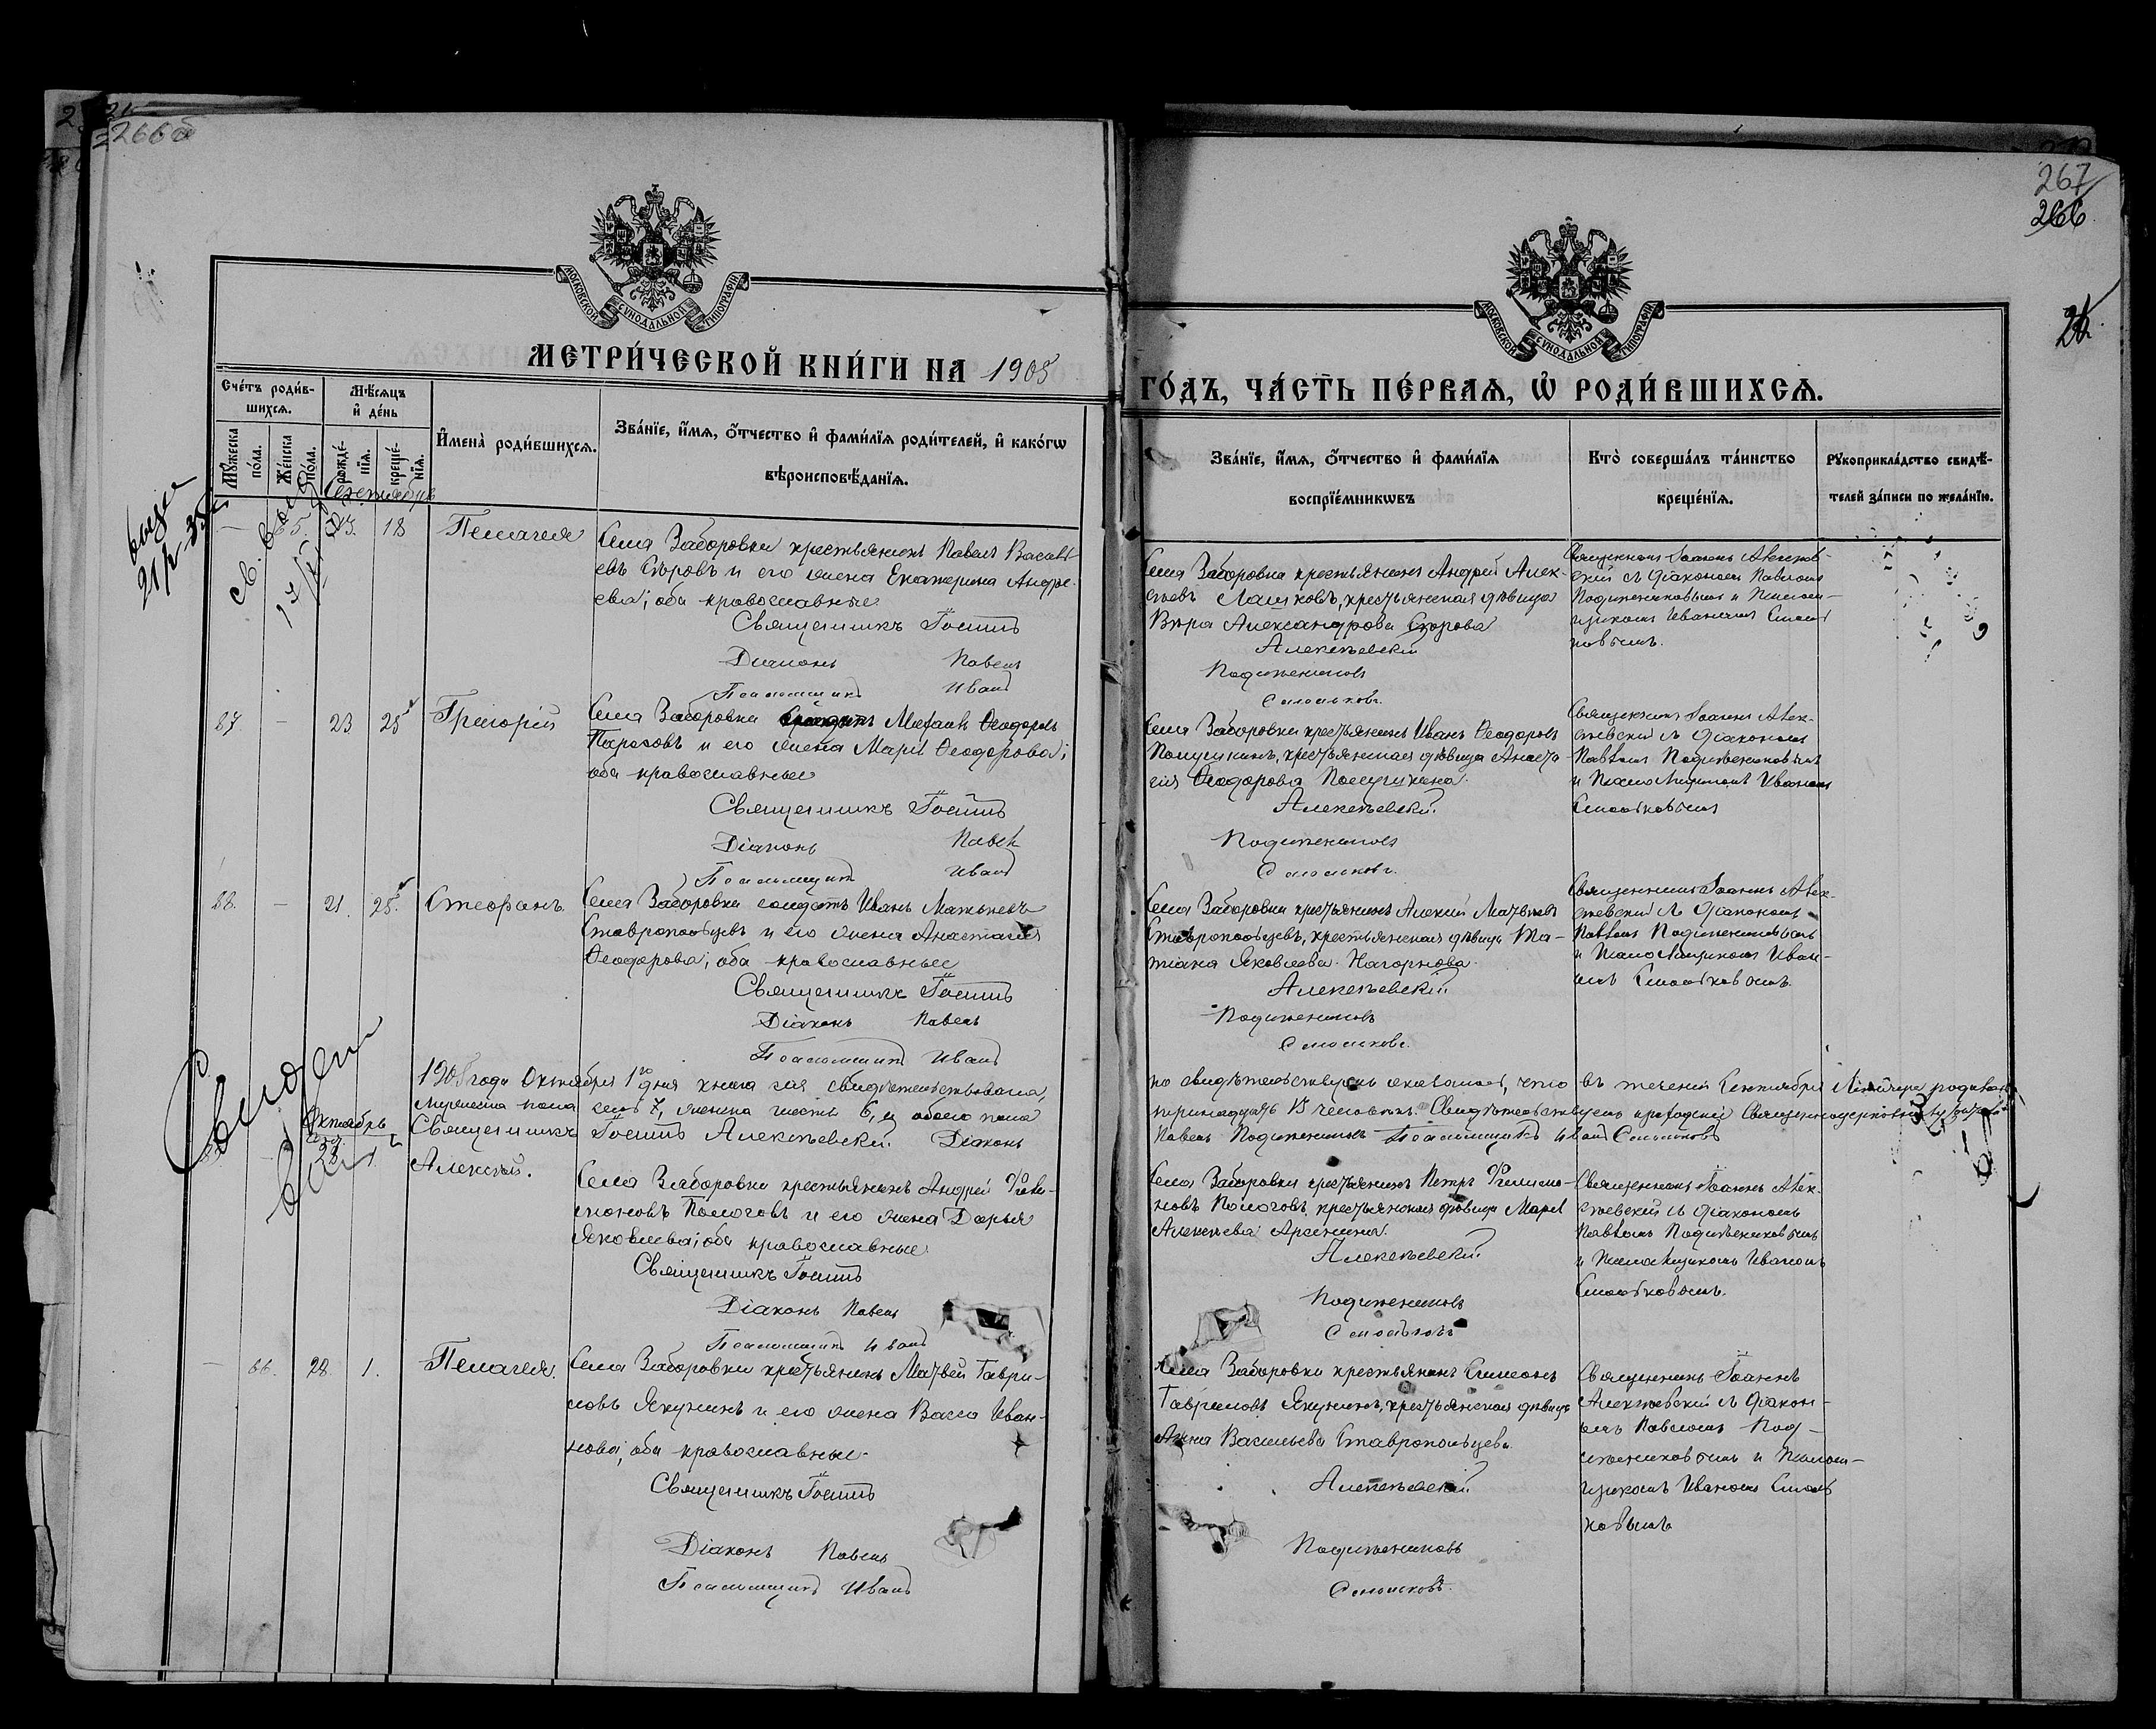 266об
267
266
МОСКОВСКОЙ СѴНОДАЛЬНОЙ ТИПОГРАФІИ
МОСКОВСКОЙ СѴНОДАЛЬНОЙ ТИПОГРАФІИ
МЕТРИ́ЧЕСКОЙ КНИ́ГИ НА 1905
ГО́ДЪ, ЧА́СТЬ ПЕ́РВАѦ, Ѿ РОДИ́ВШИХСѦ.
Сче́тъ роди́в-
шихсѧ.
Мѣ́сяцъ
и҆ де́нь
Мꙋ́жеска
по́ла.
Же́нска
по́ла.
рожде́-
нїѧ.
креще́-
нїѧ.
И҆мена̀ роди́вшихсѧ.
Зва́нїе, и҆́мѧ, ѻ҆́тчество и҆ фами́лїѧ роди́телей, и҆ како́гѡ
вѣ̀роисповѣ́данїѧ.
Зва́нїе, и҆́мѧ, ѻ҆́тчество и҆ фами́лїѧ
воспрїе́мникѡвъ
Кто̀ соверша́лъ та́инство
креще́нїѧ.
Рꙋкоприкла́дство свидѣ́-
телей за́писи по жела́нїю.
Сентябрь
— 65. 23. 18 Пелагея
Села Заборовки крестьянинъ Павелъ Василь-
евъ Егоровъ и его жена Екатерина Андре-
ева; оба православные
Священникъ Іоаннъ
Діаконъ Павелъ
Псаломщикъ Иванъ
Села Заборовки крестьянинъ Андрей Алек-
сѣевъ Лашковъ, крестьянская дѣвица
Вѣра Александрова Егорова
Алексѣевскій
Подижениковъ
Смольковъ.
Священникъ Іоаннъ Алексѣев-
скій съ діакономъ Павломъ
Подижениковымъ и Псалом-
щикомъ Иваномъ Смоль
ковымъ.
87. — 23 25 Григорій
Села Заборовки Михаилъ Ѳеодоровъ
и его жена Марія Ѳеодорова;
оба православные
Священникъ Іоаннъ
Діаконъ Павелъ
Псаломщикъ Иванъ
Села Заборовки крестьянинъ Иванъ Ѳеодоровъ
крестьянская дѣвица Анаста
сія Ѳеодорова
Алексѣевскій.
Подижениковъ
Смольковъ.
Священникъ Іоаннъ Алек-
сѣевскій съ діакономъ
Павломъ Подижениковымъ
и Псаломщикомъ Иваномъ
Смольковымъ
88. — 21. 25. Стефанъ.
Села Заборовки солдатъ Иванъ Матвѣевъ
Ставропольцевъ и его жена Анастасія
Ѳеодорова; оба православные
Священникъ Іоаннъ
Діаконъ Павелъ
Псаломщикъ Иванъ
Села Заборовки крестьянинъ Алексій Матвѣевъ
Ставропольцевъ, крестьянская дѣвица Та-
тіана Яковлева Нагорнова.
Алексѣевскій
Подижениковъ
Смольковъ.
Священникъ Іоаннъ Алек-
сѣевскій съ діакономъ
Павломъ Подижениковымъ
и Псаломщикомъ Иван-
омъ Смольковымъ.
1905 года Октября 1го дня книга сія свидѣтельствована,
но свидѣтельству оказалось, что въ теченіи Сентября мѣсяца родилось
мужеска пола семь 7, женска шесть 6, и обоего пола
тринадцать 13 человѣкъ.
Священникъ Іоаннъ Алексѣевскій. Діаконъ
Павелъ Подижениковъ Псаломщикъ Иванъ Смольковъ
Октябрь
28. 1 Алексѣй.
Села Заборовки крестьянинъ Андрей Фили-
моновъ Пологовъ и его жена Дарья
Яковлева; оба православные
Священникъ Іоаннъ
Діаконъ Павелъ
Псаломщикъ Иванъ
Села Заборовки крестьянинъ Петръ Филимо-
новъ Пологовъ, крестьянская дѣвица Марія
Алексѣева
Алексѣевскій
Подижениковъ
Смольковъ
Священникъ Іоаннъ Алек-
сѣевскій съ діакономъ
Павломъ Подижениковымъ
и Псаломщикомъ Иваномъ
Смольковымъ.
— 66. 28. 1. Пелагея.
Села Заборовки крестьянинъ Матвей Гаври-
ловъ Якунинъ и его жена Васса Иван-
нова; оба православные
Священникъ Іоаннъ
Діаконъ Павелъ
Псаломщикъ Иванъ
Села Заборовки крестьянинъ Симеонъ
Гавриловъ Якунинъ, крестьянская дѣвица
Анна Васильева Ставропольцева.
Алексѣевскій
Подижениковъ
Смольковъ.
Священникъ Іоаннъ
Алексѣевскій съ діакон-
омъ Павломъ Под-
ижениковымъ и Псалом-
щикомъ Иваномъ Смоль
ковымъ